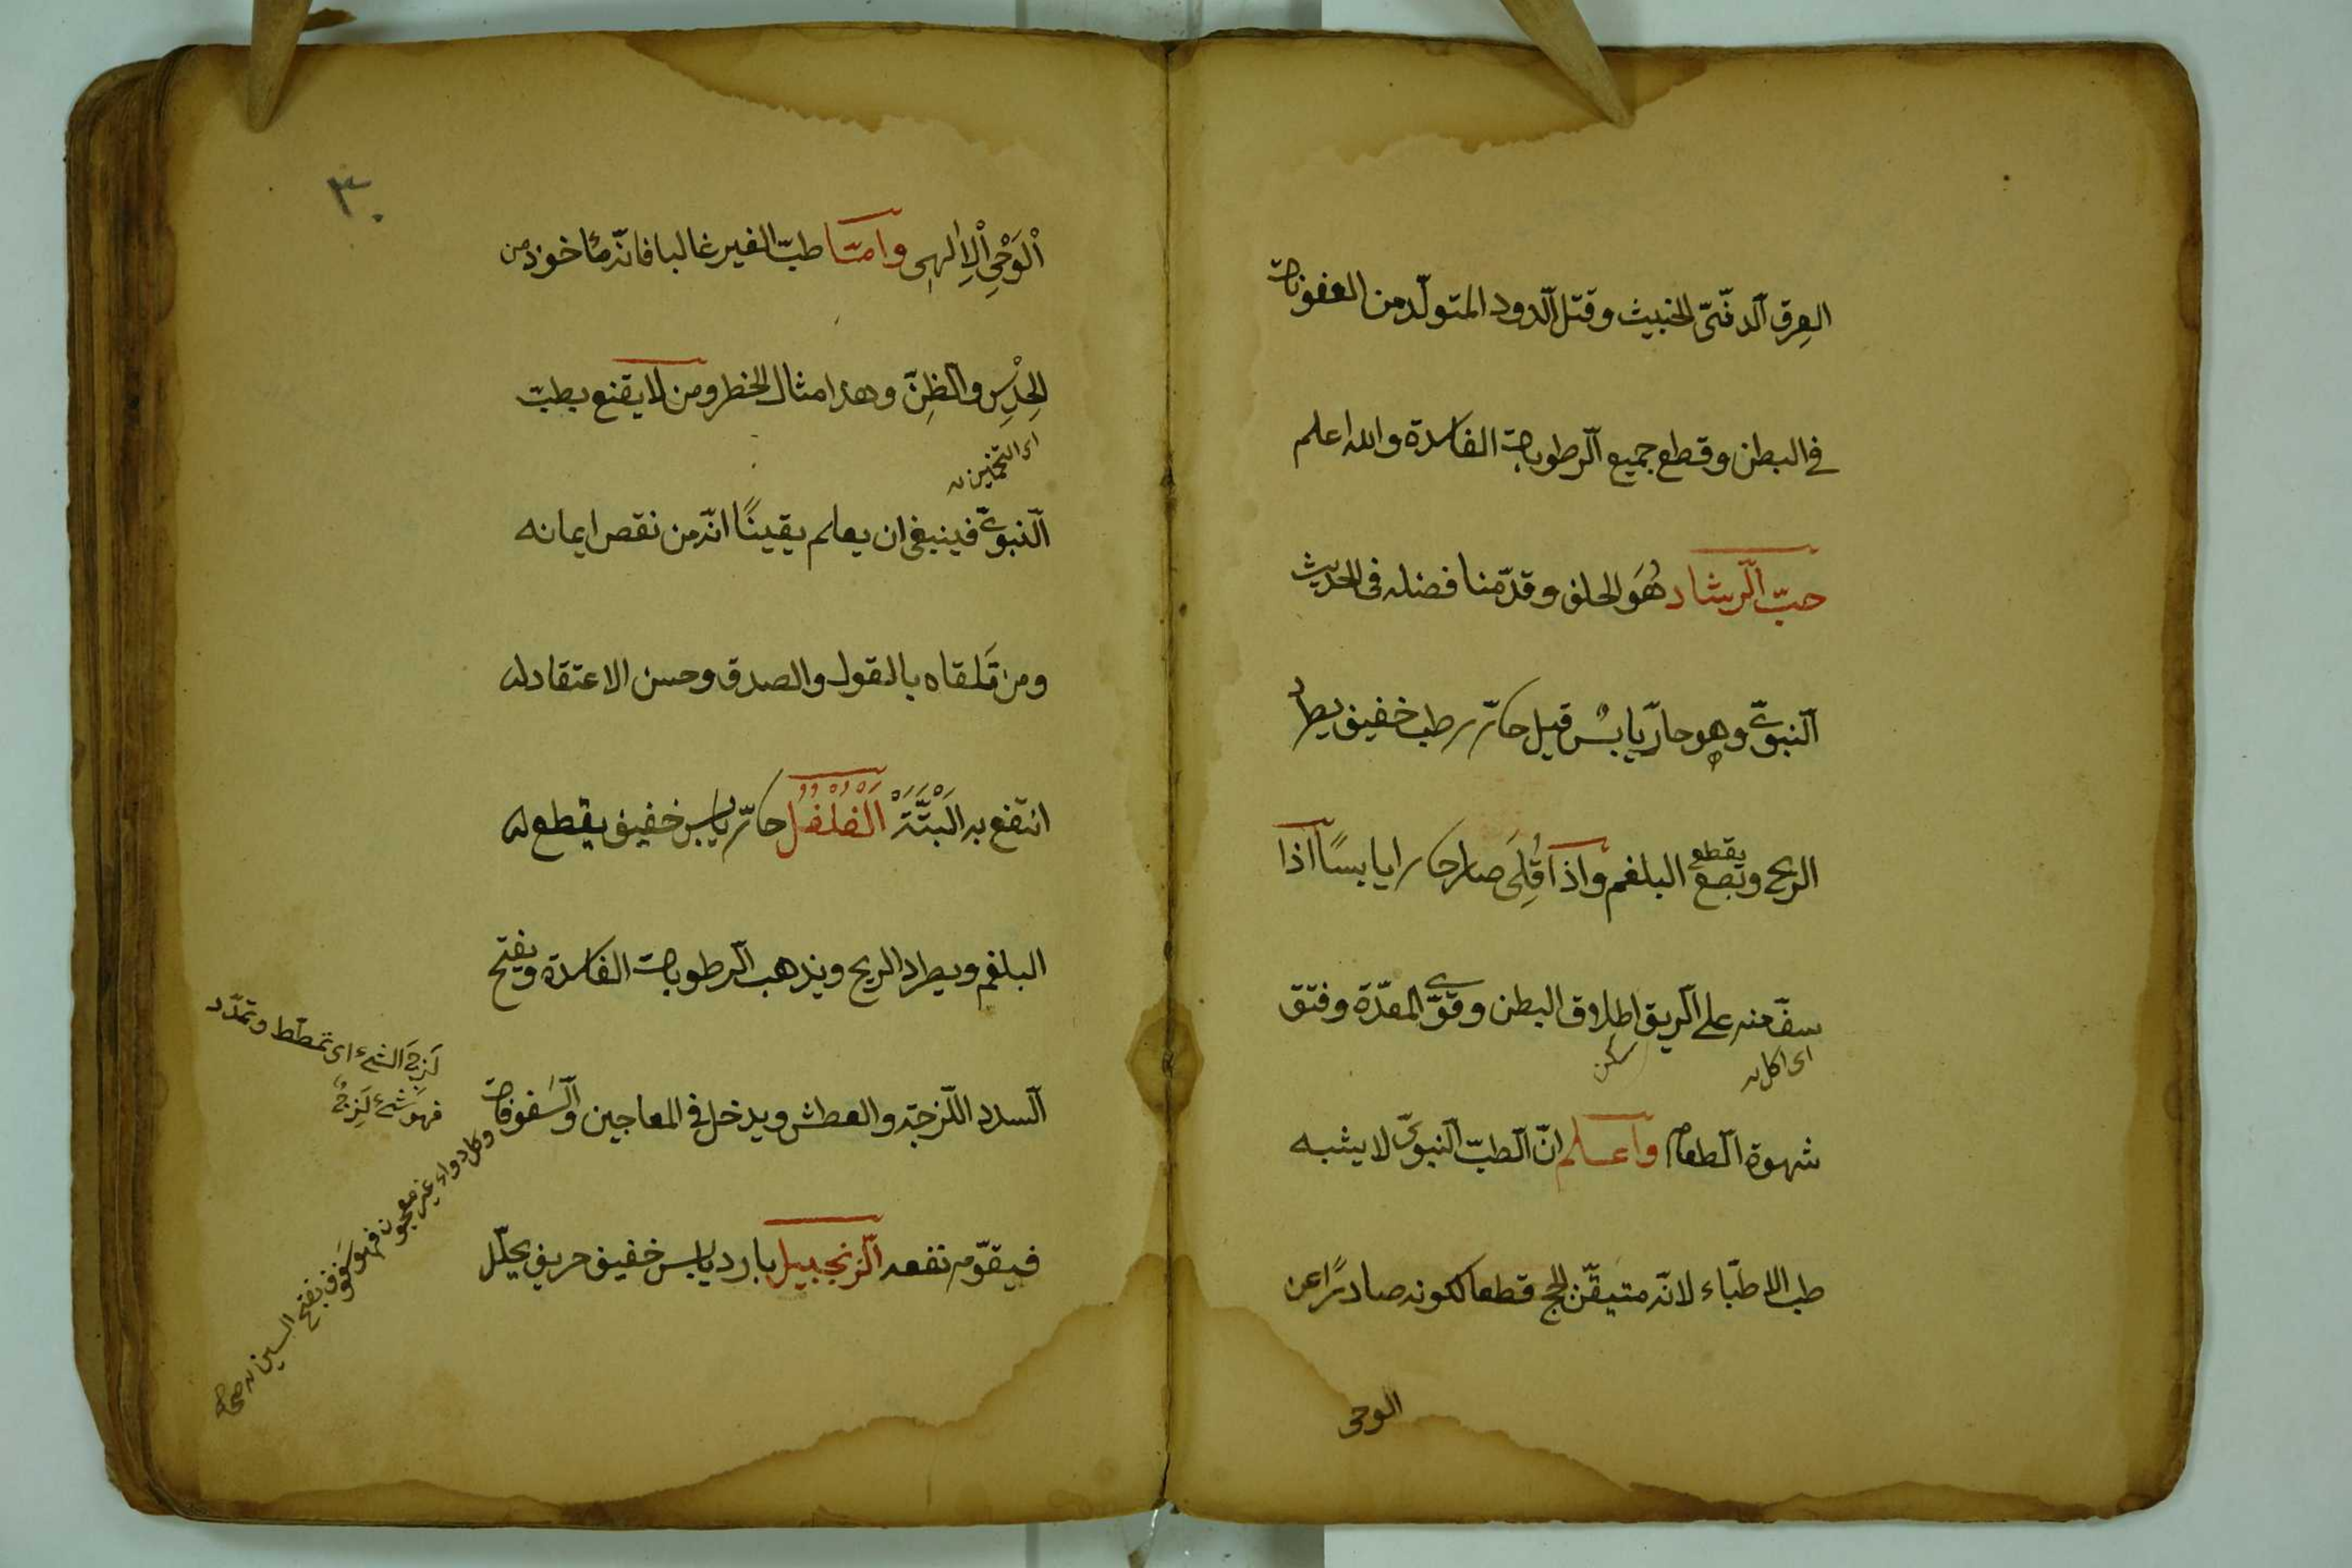 العِرق الدنّيّ الخبيث وقتل الدود المتولّد من العفونات
في البطن وقطع جميع الرطوبات الفاسدة والله اعلم
حبّ الرشاد هُوَ الحلف وقدّمنا فضله فى الحديث
النبويّ وهو حارّ يابسٌ قيل حارّ رطب خفيف يطرد
يقطع
الريح وتصع البلغم واذا قُلِىَ صار حارا يابسًا اذا
سفّ منه على الريق اطلاق البطن وقوّى المعدّة وفتق
اى اكل
شهوة الطعام واعلم انّ الطبّ النبويّ لا يشبه
طب الاطبّاء لانّه متيقّن لحج قطعا لكونه صادرًا عن
الوحى
٣٠
الْوَحْيِ الْاِلٰهى وامّا طبّ الغير غالبا فانّه مأخوذ من
الحِدْسِ والظِنّ وهذا مثال الخطر ومن لا يقنع بطبّ
اى التخمين
النبويّ فينبغى ان يعلم يقينًا انّه من نقص ايمانه
ومن تَلقاه بالقول والصدق وحسن الاعتقاد له
انتفع به الْبَتَّةَ اَلْفُلْفُل حارّ يابس خفيف يقطع له
البلغم ويطرد الريح ويذهب الرطوبات الفاسدة ويفتح
السدد اللزجة والعطش ويدخل فى المعاجين والسَّفوفات
فيقوّم نفعه الزنجبيل بارد يابس خفيف حريف يحلّل
لَزِجَ الشيء اى تمطّط وتمدّد
فهو شيء لَزِجٌ
وكل دواء غير معجون فهو سَفوف بفتح السين